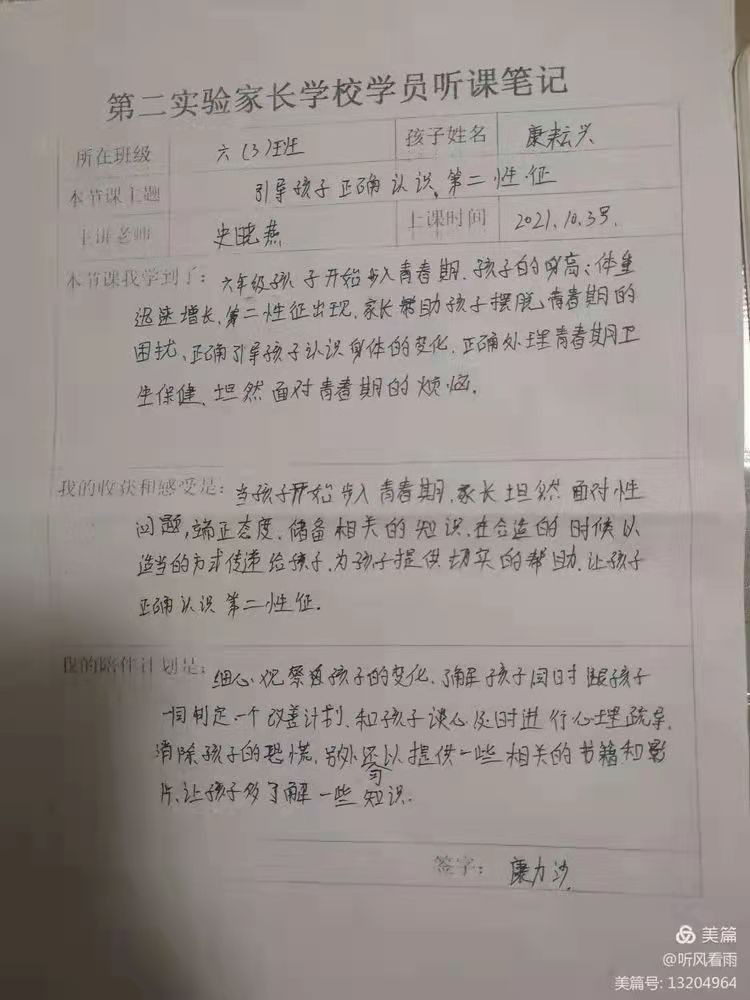 第二实验家长学校学员听课笔记
所在班级 六(3)班 孩子姓名 康耘兴
本节课主题 引导孩子正确认识第二性征
主讲老师 史晓燕 上课时间 2021.10.3号
本节课我学到了:六年级孩子开始步入青春期.孩子的身高;体重
迅速增长.第二性征出现.家长帮助孩子摆脱青春期的
困扰、正确引导孩子认识身体的变化.正确处理青春期卫
生保健、坦然面对青春期的烦恼.
我的收获和感受是:当孩子开始步入青春期.家长坦然面对性
问题,端正态度.储备相关的知识.在合适的时候以
适当的方式传递给孩子.为孩子提供切实的帮助.让孩子
正确认识第二性征.
我的陪伴计划是:细心观察孩子的变化.了解孩子同时跟孩子
一同制定一个改善计划.和孩子谈心及时进行心理疏导.
消除孩子的恐慌.另外还可以提供一些相关的书籍和影
片.让孩子多了解一些知识.
签字:康力沙
美篇
@听风看雨
美篇号: 13204964